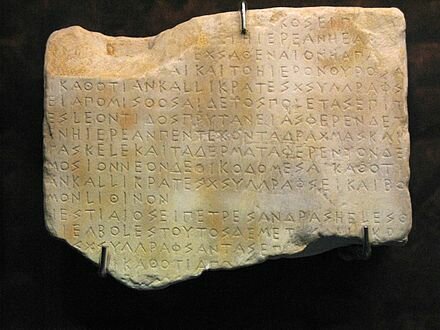 ΚΟΣΕΙΠ
ΕΙΗΙΕΡΕΑΝΗΕΑ
ΕΧΣΑΘΕΝΑΙΟΝΗΑΠΑ
ΑΙΚΑΙΤΟΗΙΕΡΟΝΘΥΡΟΣΑ
ΙΚΑΘΟΤΙΑΝΚΑΛΛΙΚΡΑΤΕΣΧΣΥΓΓΡΑΦΣ
ΕΙΑΠΟΜΙΣΘΟΣΑΙΔΕΤΟΣΠΟΛΕΤΑΣΕΠΙΤ
ΕΣΛΕΟΝΤΙΔΟΣΠΡΥΤΑΝΕΙΑΣΦΕΡΕΝΔΕΤ
ΕΝΗΙΕΡΕΑΝΠΕΝΤΕΚΟΝΤΑΔΡΑΧΜΑΣΚΑΙ
ΤΑΣΚΕΛΕΚΑΙΤΑΔΕΡΜΑΤΑΦΕΡΕΝΤΟΝΔΕ
ΜΟΣΙΟΝΝΕΟΝΔΕΟΙΚΟΔΟΜΕΣΑΙΚΑΘΟΤΙ
ΑΝΚΑΛΛΙΚΡΑΤΕΣΧΣΥΓΓΡΑΦΣΕΙΚΑΙΒΟ
ΜΟΝΛΙΘΙΝΟΝ
ΗΕΣΤΙΑΙΟΣΕΙΠΕΤΡΕΣΑΝΔΡΑΣΗΕΛΕΣΘ
ΑΙΕΓΒΟΛΕΣΤΟΥΤΟΣΔΕΜΕΤ
ΣΧΣΥΓΓΡΑΦΣΑΝΤΑΣ
ΕΙΚΑΘΟΤΙΑΠΟ